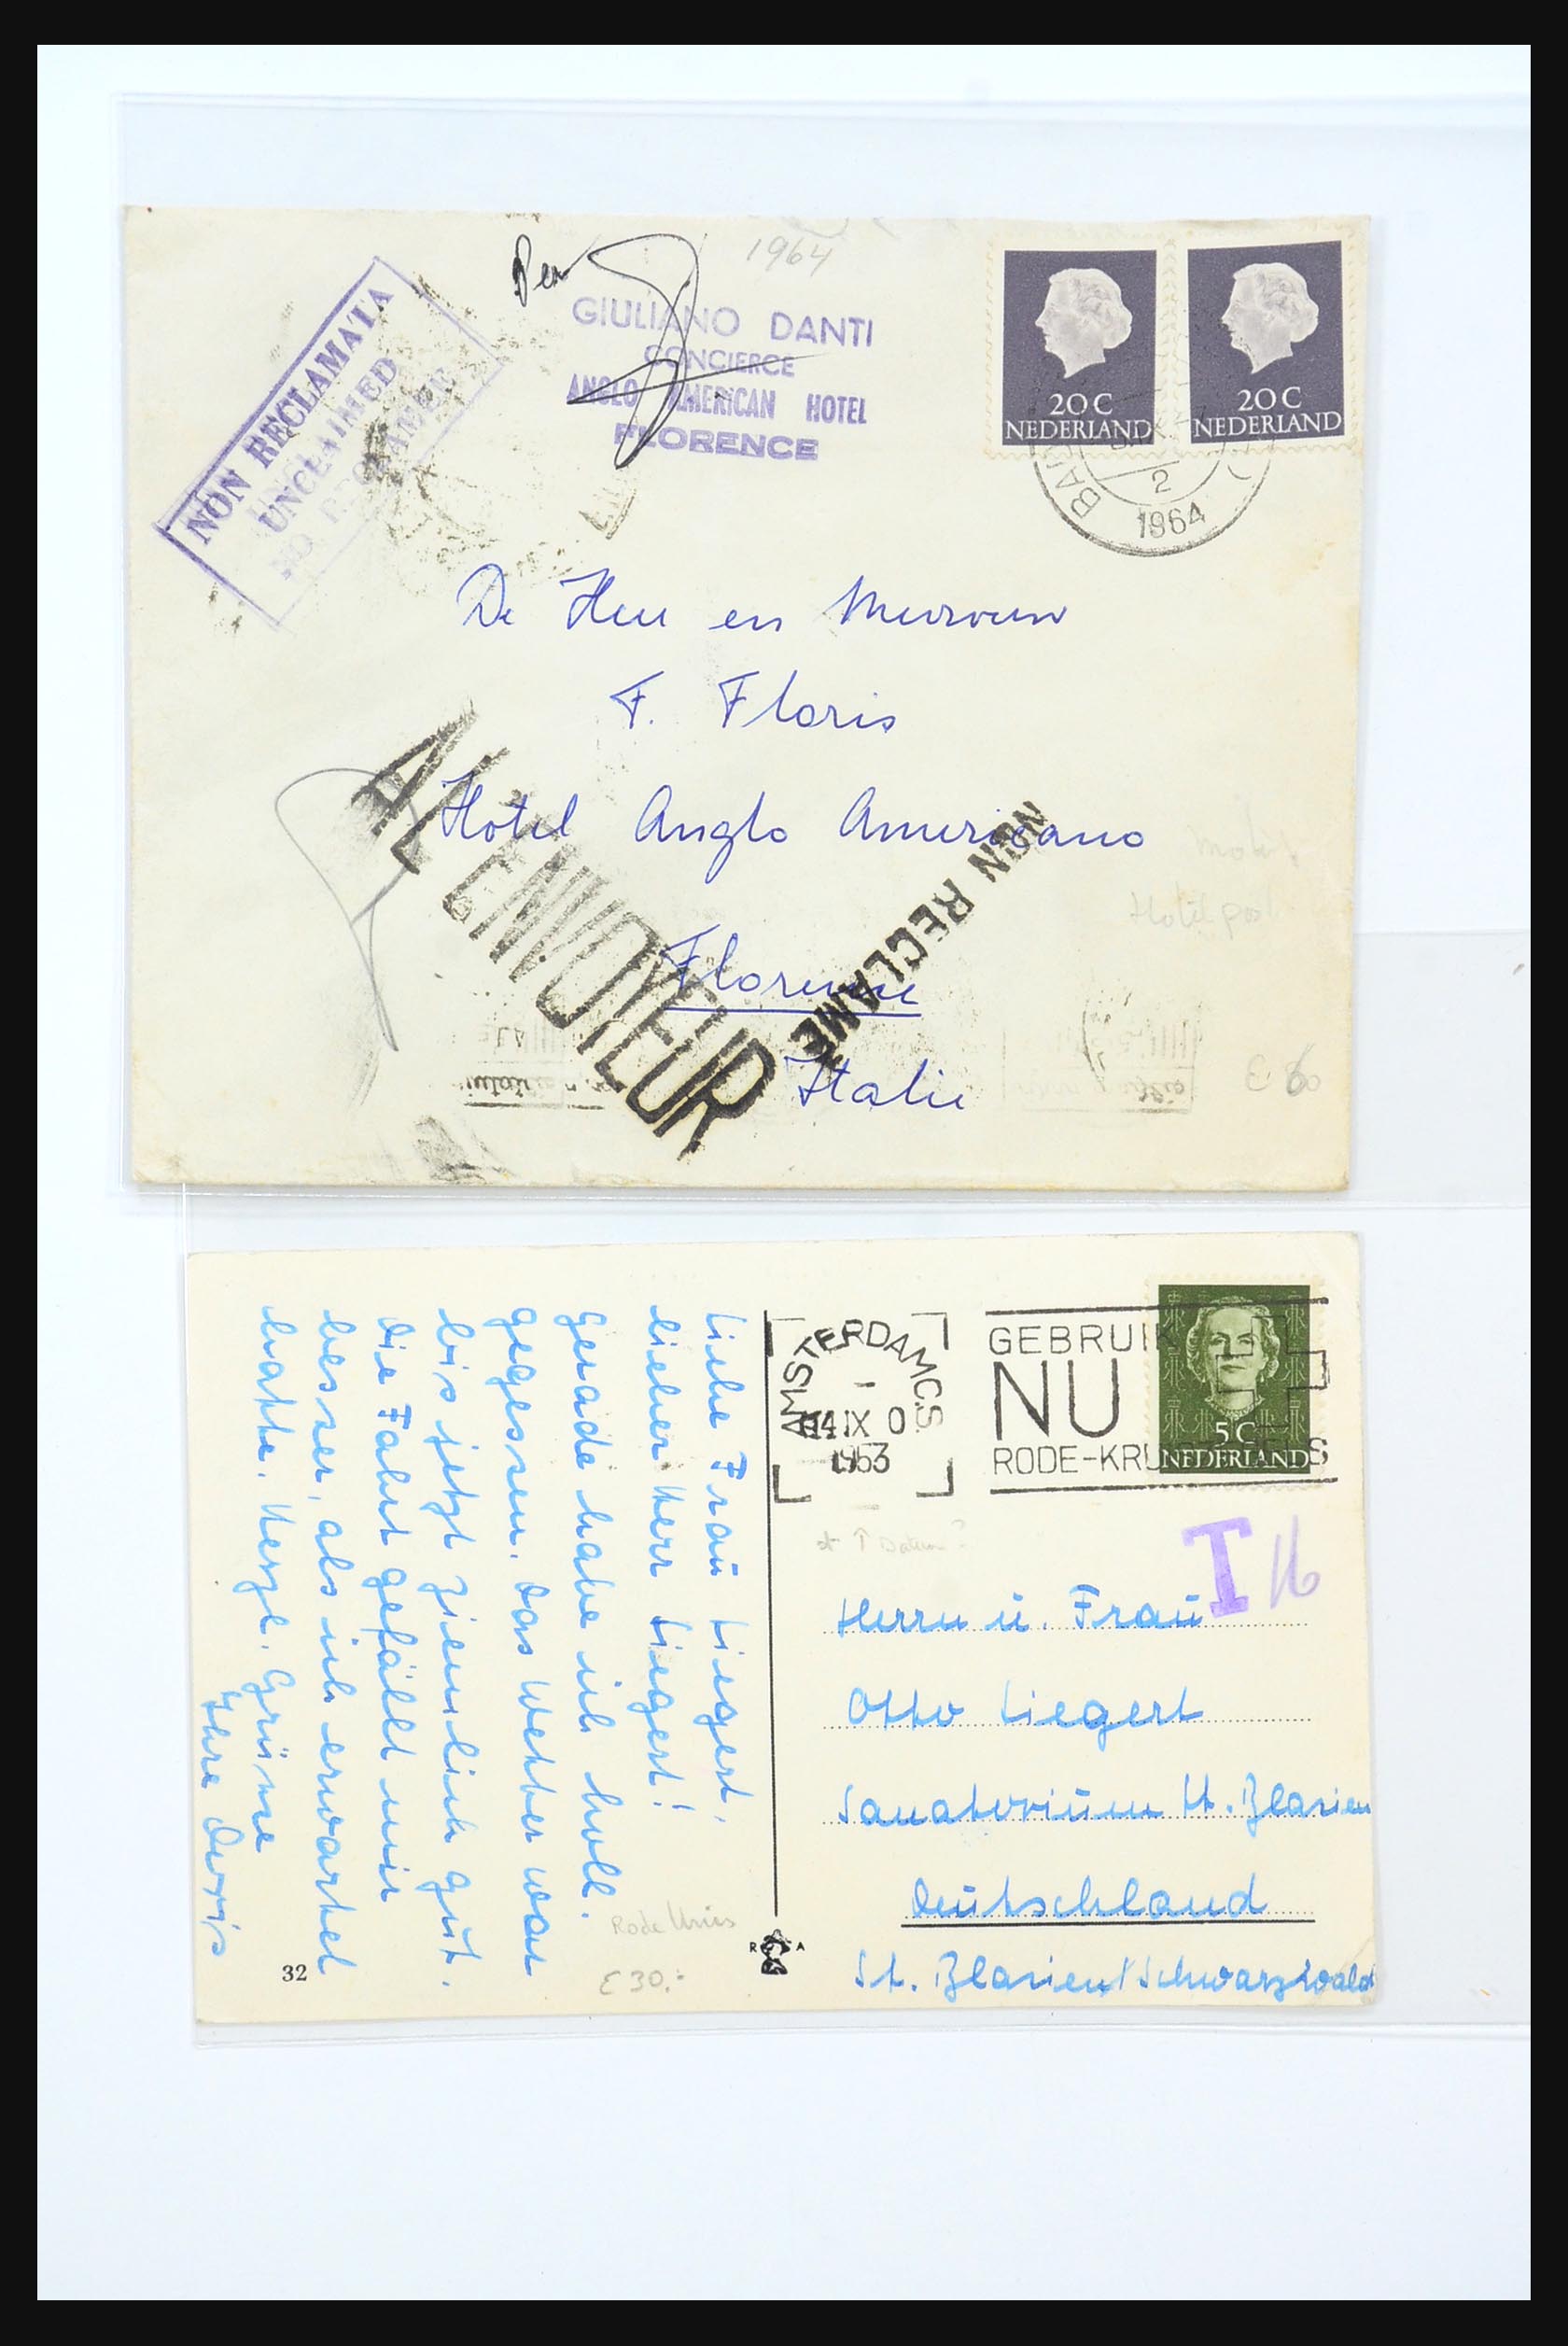 1964
GIULIANO DANTI
CONCIERCE
ANGLO AMERICAN HOTEL
FLORENCE
NON RECLAMATA
UNCLAIMED
20 C
NEDERLAND
20 C
NEDERLAND
2
1964
De Heer en Mevrouw
F. Floris
Hotel Anglo Americano
Florence
Italie
A L'ENVOYEUR
NON RECLAME
Hotelpost
Liebe Frau Liegert,
lieber Herr Liegert!
Gerade habe ich holl.
gegessen. Das Wetter war
bis jetzt ziemlich gut.
Die Fahrt gefällt mir
besser, als ich erwartet
hatte. Herzl. Grüsse
Ihre
AMSTERDAM C.S.
14 IX 0
1953
GEBRUIK
NU
RODE-KRU S
5 C
NEDERLAND
T 16
Datum?
Herrn u. Frau
Otto Liegert
Sanatorium St. Blasien
Deutschland
St. Blasien/Schwarzwald
Rode Kruis
€ 30.-
R A
32